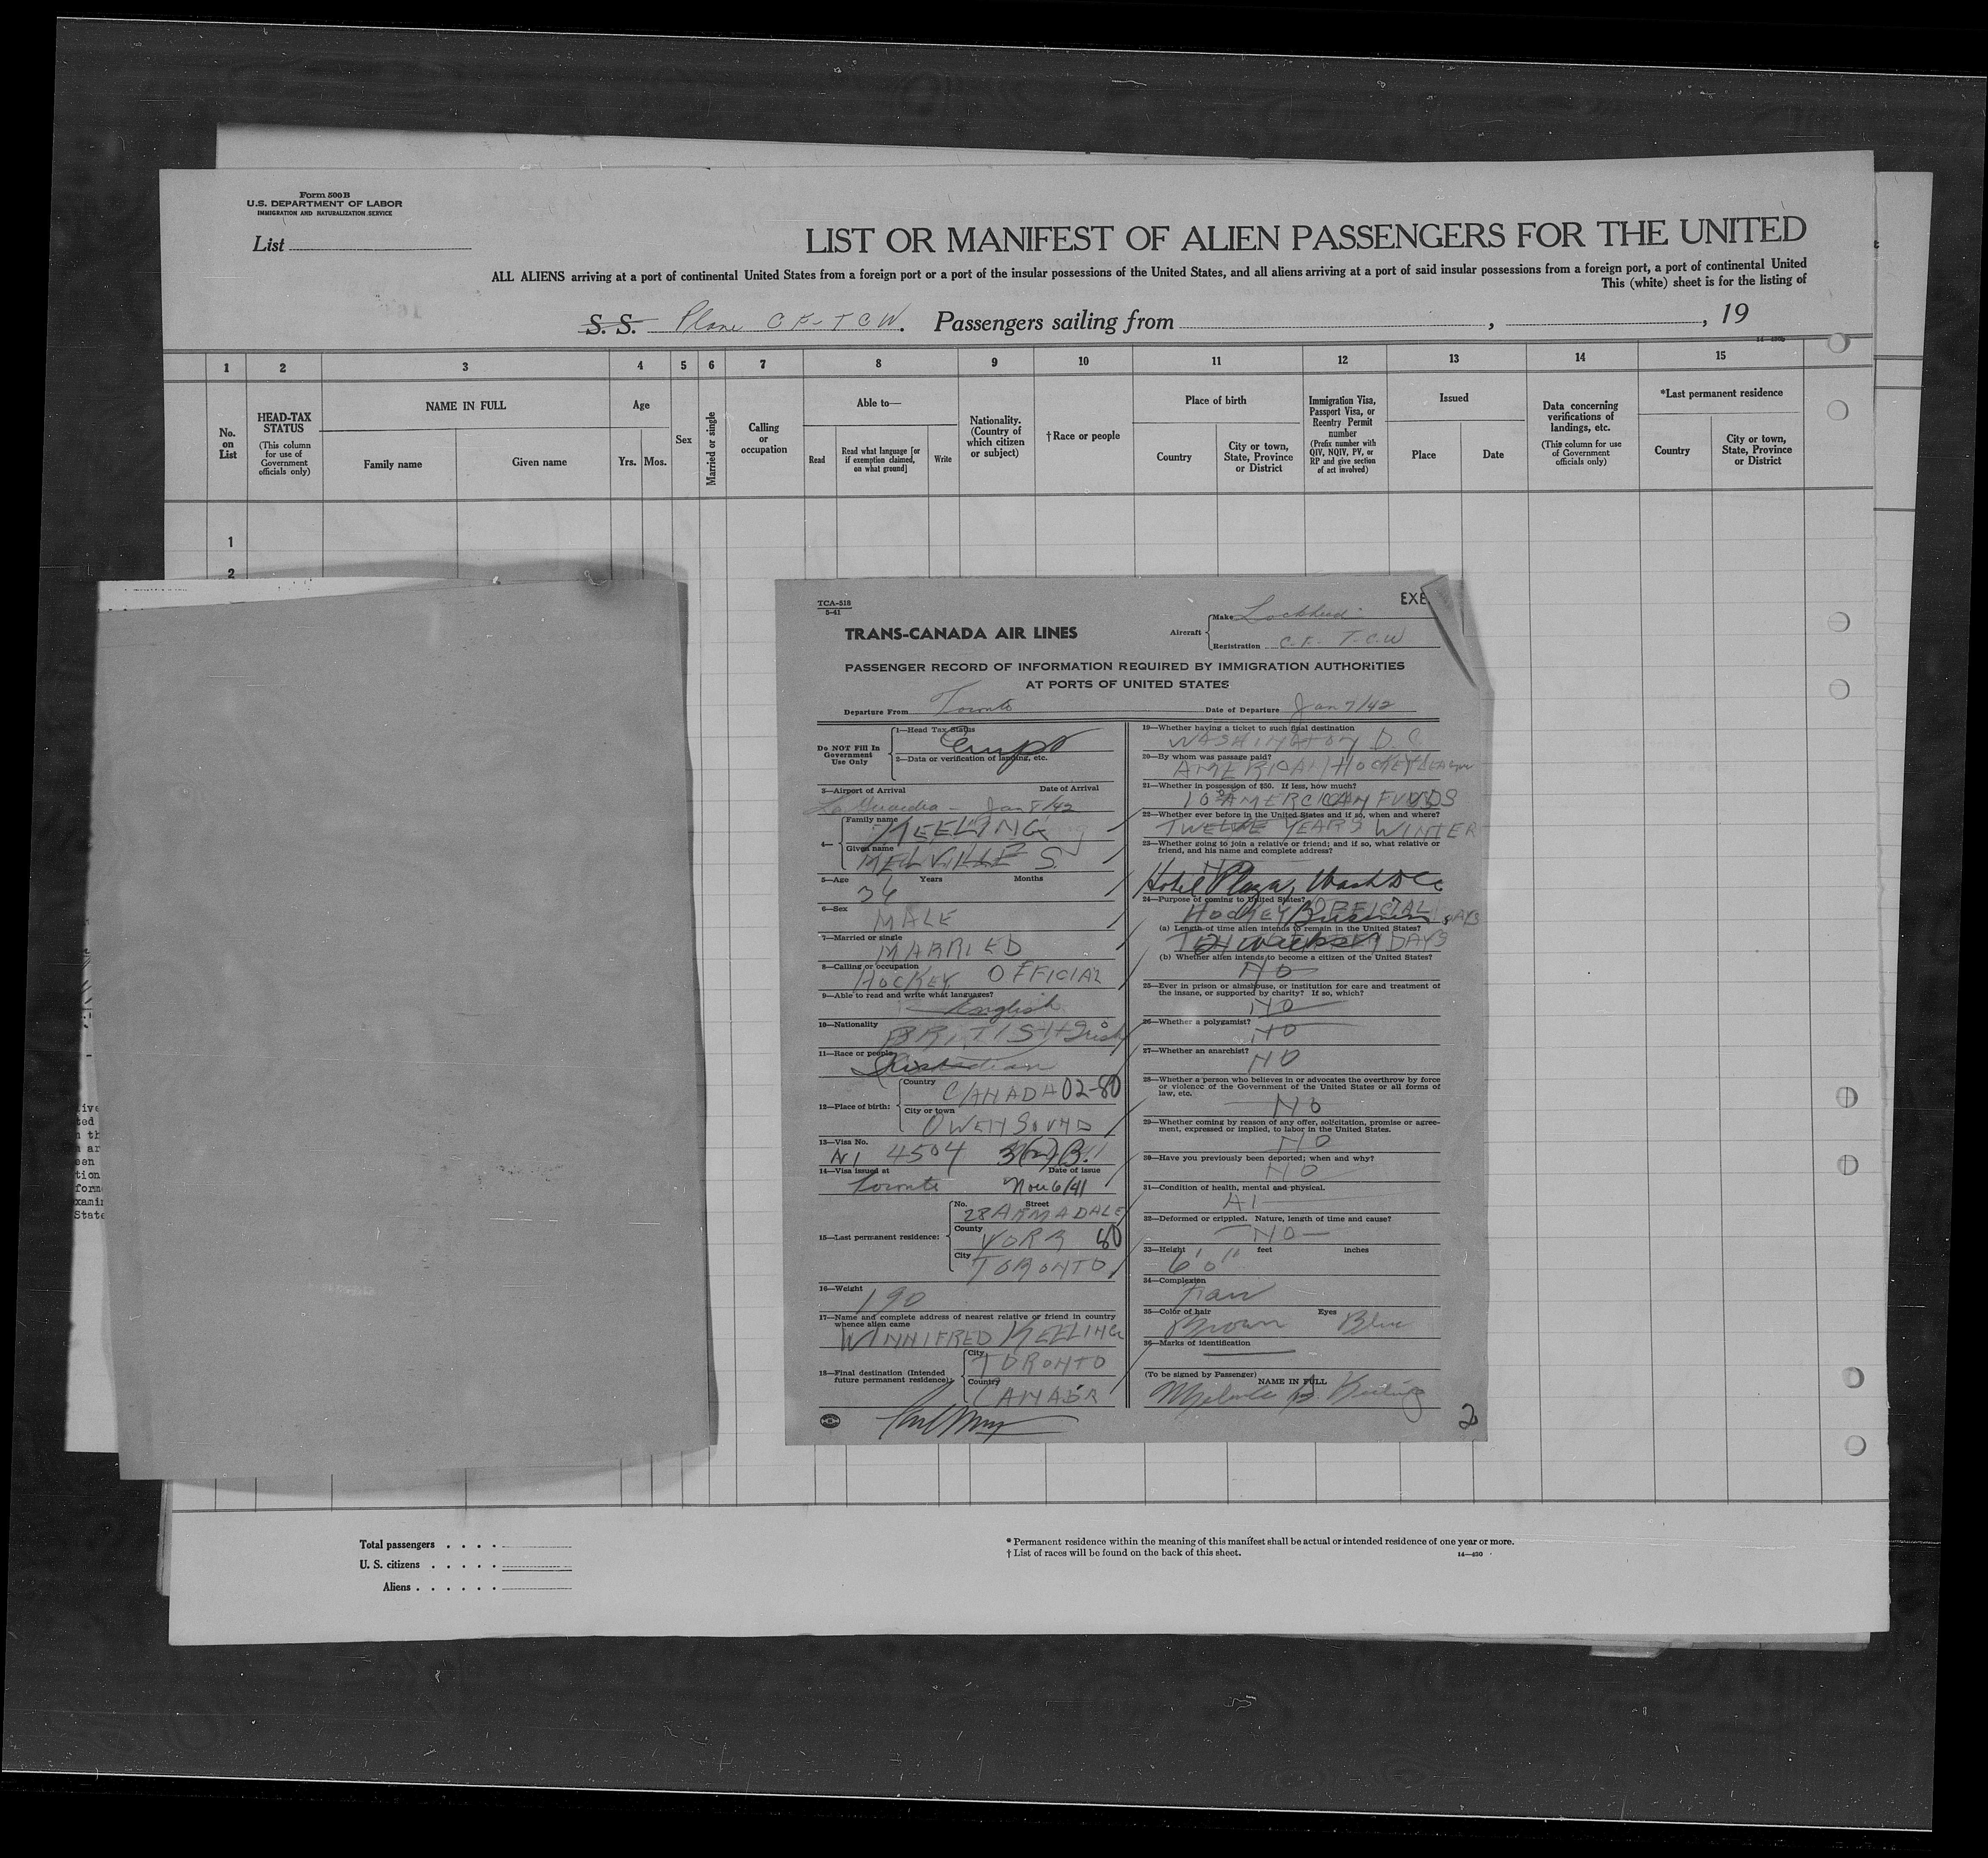 Form 500B
U.S. DEPARTMENT OF LABOR
IMMIGRATION AND NATURALIZATION SERVICE
List
LIST OR MANIFEST OF ALIEN PASSENGERS FOR THE UNITED
ALL ALIENS arriving at a port of continental United States from a foreign port or a port of the insular possessions of the United States, and all aliens arriving at a port of said insular possessions from a foreign port, a port of continental United
This (white) sheet is for the listing of
S. S. Plane CF-TCW. Passengers sailing from , , 19
1 2 3 4 5 6 7 8 9 10 11 12 13 14 15
No. on List
HEAD-TAX STATUS
(This column for use of Government officials only)
NAME IN FULL
Family name
Given name
Age
Yrs. Mos.
Sex
Married or single
Calling or occupation
Able to—
Read
Read what language [or if exemption claimed, on what ground]
Write
Nationality. (Country of which citizen or subject)
†Race or people
Place of birth
Country
City or town, State, Province or District
Immigration Visa, Passport Visa, or Reentry Permit number
(Prefix number with QIV, NQIV, PV, or RP and give section of act involved)
Issued
Place
Date
Data concerning verifications of landings, etc.
(This column for use of Government officials only)
*Last permanent residence
Country
City or town, State, Province or District
1
2
TCA-518
5-41
TRANS-CANADA AIR LINES
EXE
Aircraft
Make Lockheed
Registration C.F.-T.C.W
PASSENGER RECORD OF INFORMATION REQUIRED BY IMMIGRATION AUTHORITIES
AT PORTS OF UNITED STATES
Departure From Toronto Date of Departure Jan 7/42
Do NOT Fill In Government Use Only
1—Head Tax Status
2—Data or verification of landing, etc.
3—Airport of Arrival Date of Arrival
La Guardia - Jan 8/42
4— Family name KEELING
Given name MELVILLE S.
5—Age Years Months
36
6—Sex
MALE
7—Married or single
MARRIED
8—Calling or occupation
HOCKEY OFFICIAL
9—Able to read and write what languages?
English
10—Nationality
BRITISH Irish
11—Race or people
12—Place of birth:
Country
CANADA 02-80
City or town
OWEN SOUND
13—Visa No.
4504 3(2) B.
14—Visa issued at Date of issue
Toronto Nov 6/41
15—Last permanent residence:
No. Street
28 ARMADALE
County
YORK 80
City
TORONTO
16—Weight
190
17—Name and complete address of nearest relative or friend in country whence alien came
WINNIFRED KEELING
18—Final destination (Intended future permanent residence):
City
TORONTO
Country
CANADA
19—Whether having a ticket to such final destination
WASHINGTON D.C.
20—By whom was passage paid?
AMERICAN HOCKEY LEAGUE
21—Whether in possession of $50. If less, how much?
AMERICAN FUNDS
22—Whether ever before in the United States and if so, when and where?
TWELVE YEARS WINTER
23—Whether going to join a relative or friend; and if so, what relative or friend, and his name and complete address?
Hotel Plaza, Wash D.C.
24—Purpose of coming to United States?
HOCKEY OFFICIAL Business
(a) Length of time alien intends to remain in the United States?
2 weeks DAYS
(b) Whether alien intends to become a citizen of the United States?
NO
25—Ever in prison or almshouse, or institution for care and treatment of the insane, or supported by charity? If so, which?
NO
26—Whether a polygamist?
NO
27—Whether an anarchist?
NO
28—Whether a person who believes in or advocates the overthrow by force or violence of the Government of the United States or all forms of law, etc.
NO
29—Whether coming by reason of any offer, solicitation, promise or agreement, expressed or implied, to labor in the United States.
NO
30—Have you previously been deported; when and why?
NO
31—Condition of health, mental and physical.
A1
32—Deformed or crippled. Nature, length of time and cause?
NO
33—Height feet inches
6' 0"
34—Complexion
Fair
35—Color of hair Eyes
Brown Blue
36—Marks of identification
(To be signed by Passenger)
NAME IN FULL
Melville S. Keeling
2
Total passengers
U. S. citizens
Aliens
* Permanent residence within the meaning of this manifest shall be actual or intended residence of one year or more.
† List of races will be found on the back of this sheet.
14—430